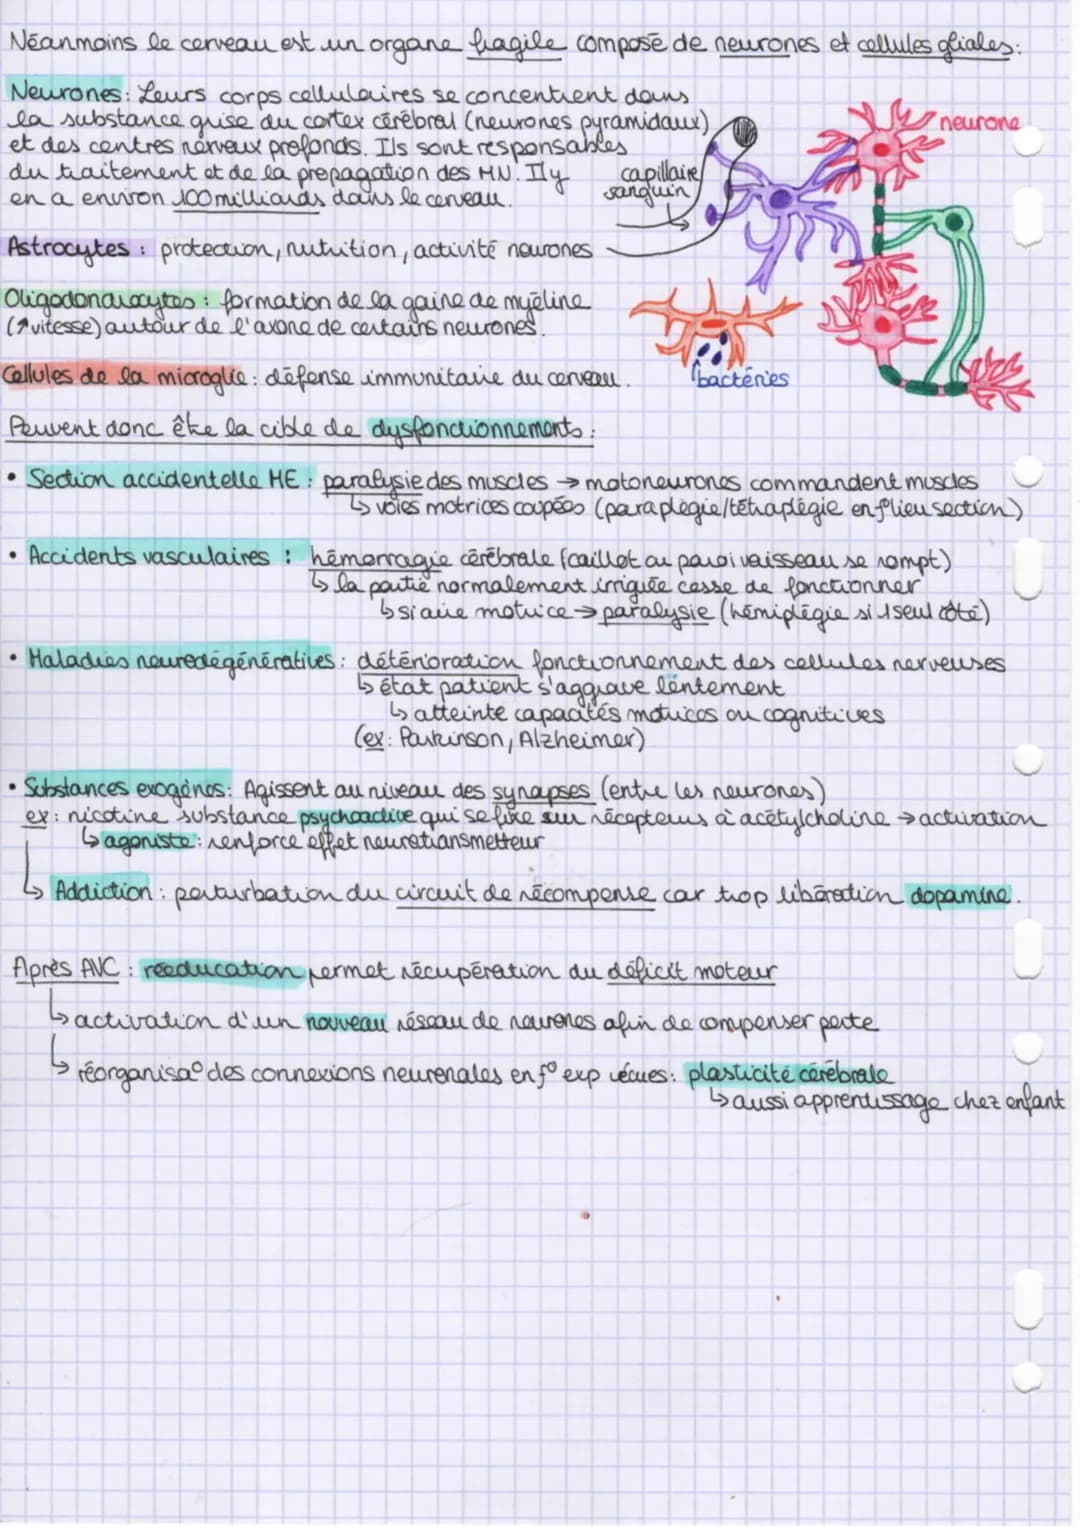 Néanmoins le cerveau est un organe fragile composé de neurones et cellules gliales:
Neurones: Leurs corps cellulaires se concentrent dans
la substance grise du cortex cérébral (neurones pyramidaux)
et des centres nerveux profonds. Ils sont responsables
du traitement et de la propagation des MN. Il y
en a environ 100 milliards dans le cerveau.
neurone
capillaire
sanguin
Astrocytes : protection, nutrition, activité neurones
Oligodendrocytes : formation de la gaine de myéline
(↗vitesse) autour de l'axone de certains neurones.
Cellules de la microglie : défense immunitaire du cerveau.
bactéries
Peuvent donc être la cible de dysfonctionnements :
• Section accidentelle ME : paralysie des muscles → motoneurones commandent muscles
↳ voies motrices coupées (paraplégie/tétraplégie en f° lieu section)
• Accidents vasculaires : hémorragie cérébrale (caillot ou paroi vaisseau se rompt)
↳ la partie normalement irriguée cesse de fonctionner
↳ si aire motrice → paralysie (hémiplégie si 1 seul côté)
• Maladies neurodégénératives : détérioration fonctionnement des cellules nerveuses
↳ état patient s'aggrave lentement
↳ atteinte capacités motrices ou cognitives
(ex: Parkinson, Alzheimer)
• Substances exogènes: Agissent au niveau des synapses (entre les neurones)
ex: nicotine substance psychoactive qui se fixe sur récepteurs à acétylcholine → activation
↳ agoniste: renforce effet neurotransmetteur
↳ Addiction : perturbation du circuit de récompense car trop libération dopamine.
Après AVC : rééducation permet récupération du déficit moteur
↳ activation d'un nouveau réseau de neurones afin de compenser perte
↳ réorganisa° des connexions neuronales en f° exp vécues: plasticité cérébrale
↳ aussi apprentissage chez enfant